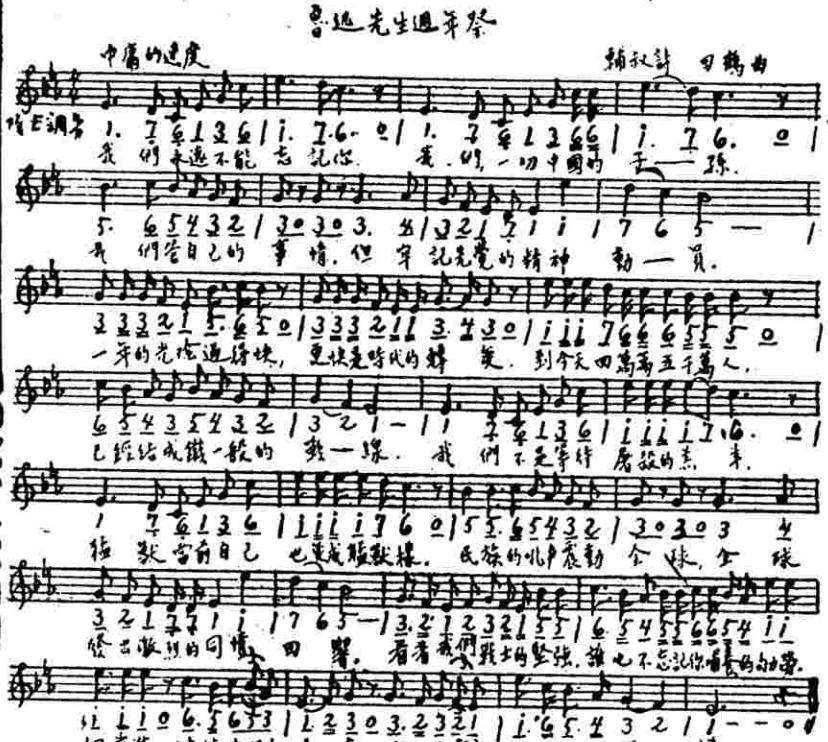 魯迅先生週年祭
中庸的速度 輔叔詩 田鶴曲
1. 7 6 1 3 6 | i. 7. 6. 0 | 1. 7 6 1 3 6 6 | i. 7 6. 0 |
我們永遠不能忘記你. 我們,一切中國的子——孫.
5. 6 5 4 3 2 | 3 0 3 0 3. 4 | 3 2 1 7 1 i | 7 6 5 — |
我們管自己的事情.但牢記先覺的精神動——員.
3 3 3 2 1 5. 6 5 0 | 3 3 3 2 1 1 3. 4 3 0 | i i i 7 6 6 6 5 5 5 0
一年的光陰過得快,更快是時代的轉變.到今天四萬萬五千萬人.
6 5 4 3 5 4 3 2 | 3 2 1 — | 1 7 6 1 3 6 | i i i i 7. 6. 0 |
已經結成鐵一般的戰—線.我們不是等待屠殺的羔羊.
1 7 6 1 3 6 | i i i i i 7 6 0 | 5 5. 6 5 4 3 2 | 3 0 3 0 3 4
猛獸當前自己也變成猛獸樣.民族的吼聲震動全球,全球
3 2 1 7 7 1 i | 7 6 5 — | 3. 2 1 2 3 2 1 5 5 | 6. 5 4 5 5 6 6 5 4 i i
發出激烈的同情回響.看看我們戰士的堅強,誰也不忘記你
i i i 0 6. 5 6 5 3 | 1 1 2 3 0 3. 2 3 2 1 | i. 6 5. 4 3 2 | 1 — — 0